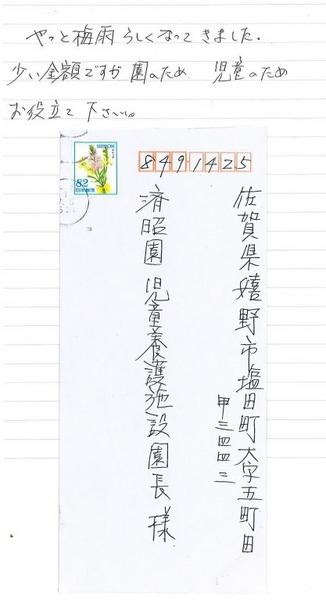 やっと梅雨らしくなってきました。
少い金額ですが 園のため 児童のため
お役立て下さい。
NIPPON
82
8491425
佐賀県嬉野市塩田町大字五町田
甲三四四三
済昭園児童養護施設園長様